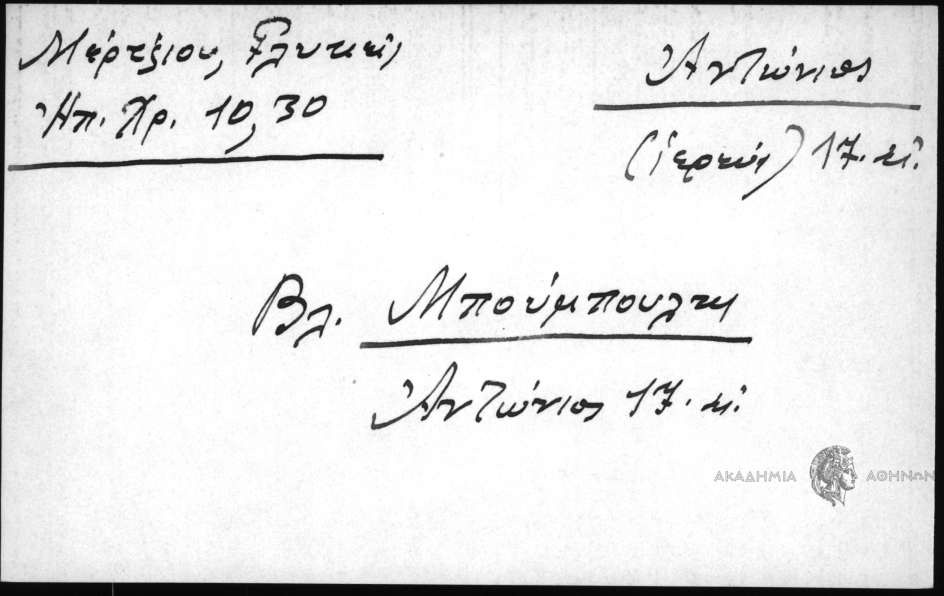 Μέρτζιου, Γλυκεῖς
Ἠπ. Χρ. 10,30
Ἀντώνιος
(ἱερεύς) 17. αἰ.
Βλ. Μπούμπουλης
Ἀντώνιος 17. αἰ.
ΑΚΑΔΗΜΙΑ ΑΘΗΝΩΝ